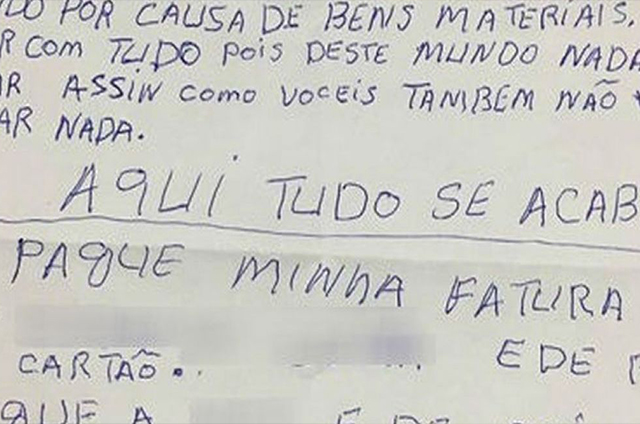 POR CAUSA DE BENS MATERIAIS,
R COM TUDO POIS DESTE MUNDO NADA
AR ASSIN COMO VOCEIS TAMBEM NÃO
AR NADA.
AQUI TUDO SE ACAB
PAGUE MINHA FATURA
CARTÃO. E DE
QUE A E DE